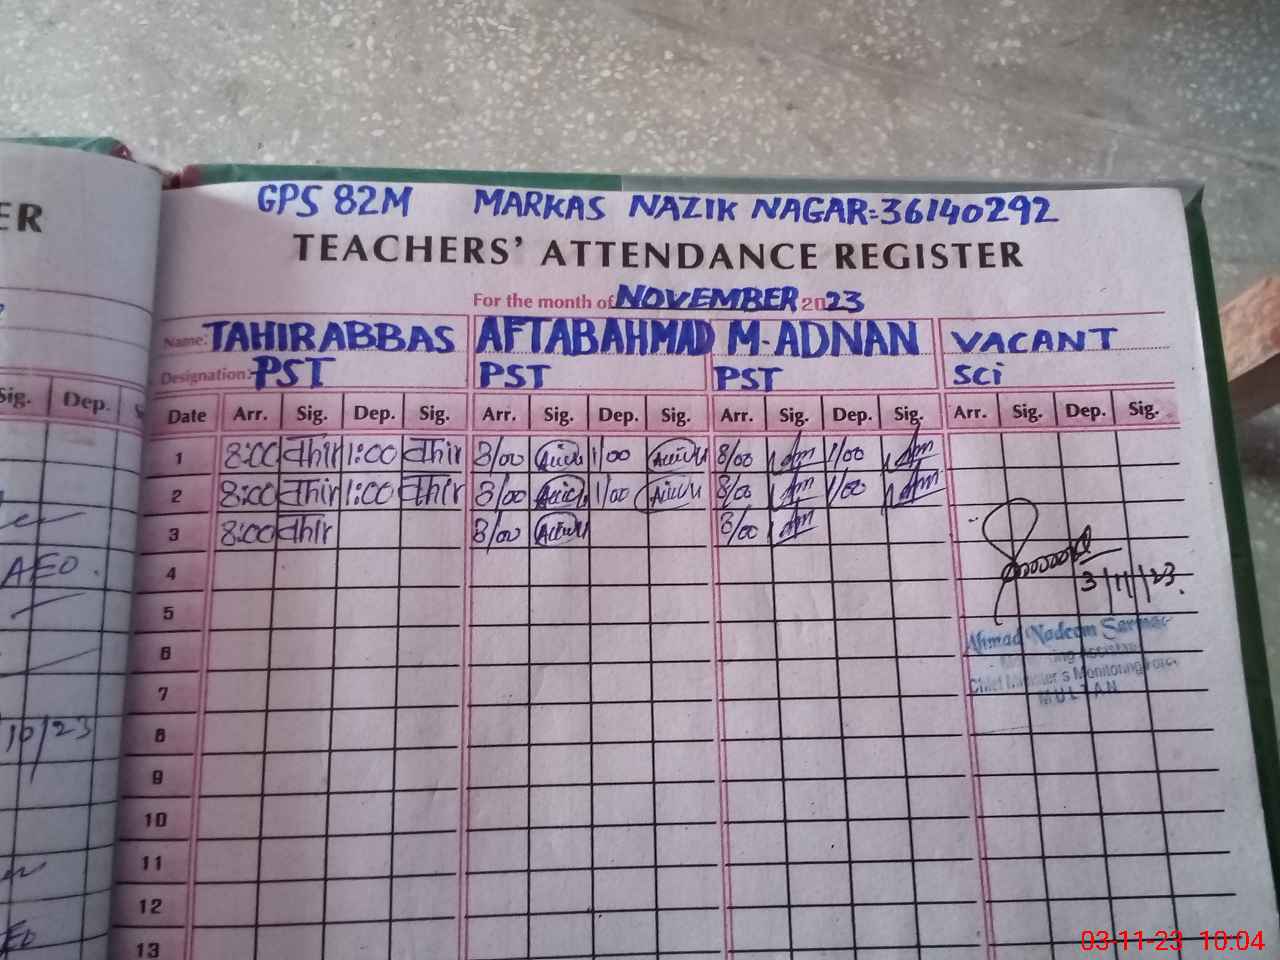 GPS 82M MARKAS NAZIK NAGAR=36140292
ER
TEACHERS' ATTENDANCE REGISTER
For the month of NOVEMBER 2023
Name: TAHIR ABBAS AFTAB AHMAD M-ADNAN VACANT
Designation: PST PST PST SCi
Sig. Dep.
Date Arr. Sig. Dep. Sig. Arr. Sig. Dep. Sig. Arr. Sig. Dep. Sig. Arr. Sig. Dep. Sig.
1 8:00 Thir 1:00 Thir 8/00 1/00 8/00 1/00
2 8:00 Thir 1:00 Thir 8/00 1/00 8/00 1/00
3 8:00 Thir 8/00 8/00
AEO.
4
3/11/23.
5
Ahmad Nadeem
6
Chief Minister's Monitoring Force
7
MULTAN
10/23
8
9
10
11
12
13
03-11-23 10:04